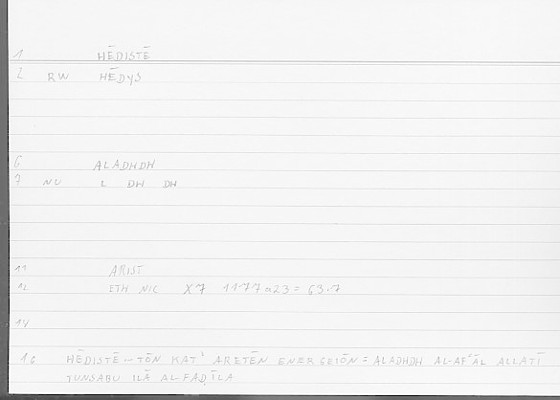 1 HĒDISTĒ
2 RW HĒDYS
6 ALADHDH
7 NU L DH DH
11 ARIST
12 ETH NIC X7 1177a23 = 63.7
14
16 HĒDISTĒ – TŌN KAT' ARETĒN ENERGEIŌN = ALADHDH AL-AFʿĀL ALLATĪ
TUNSABU ILĀ AL-FAḌĪLA